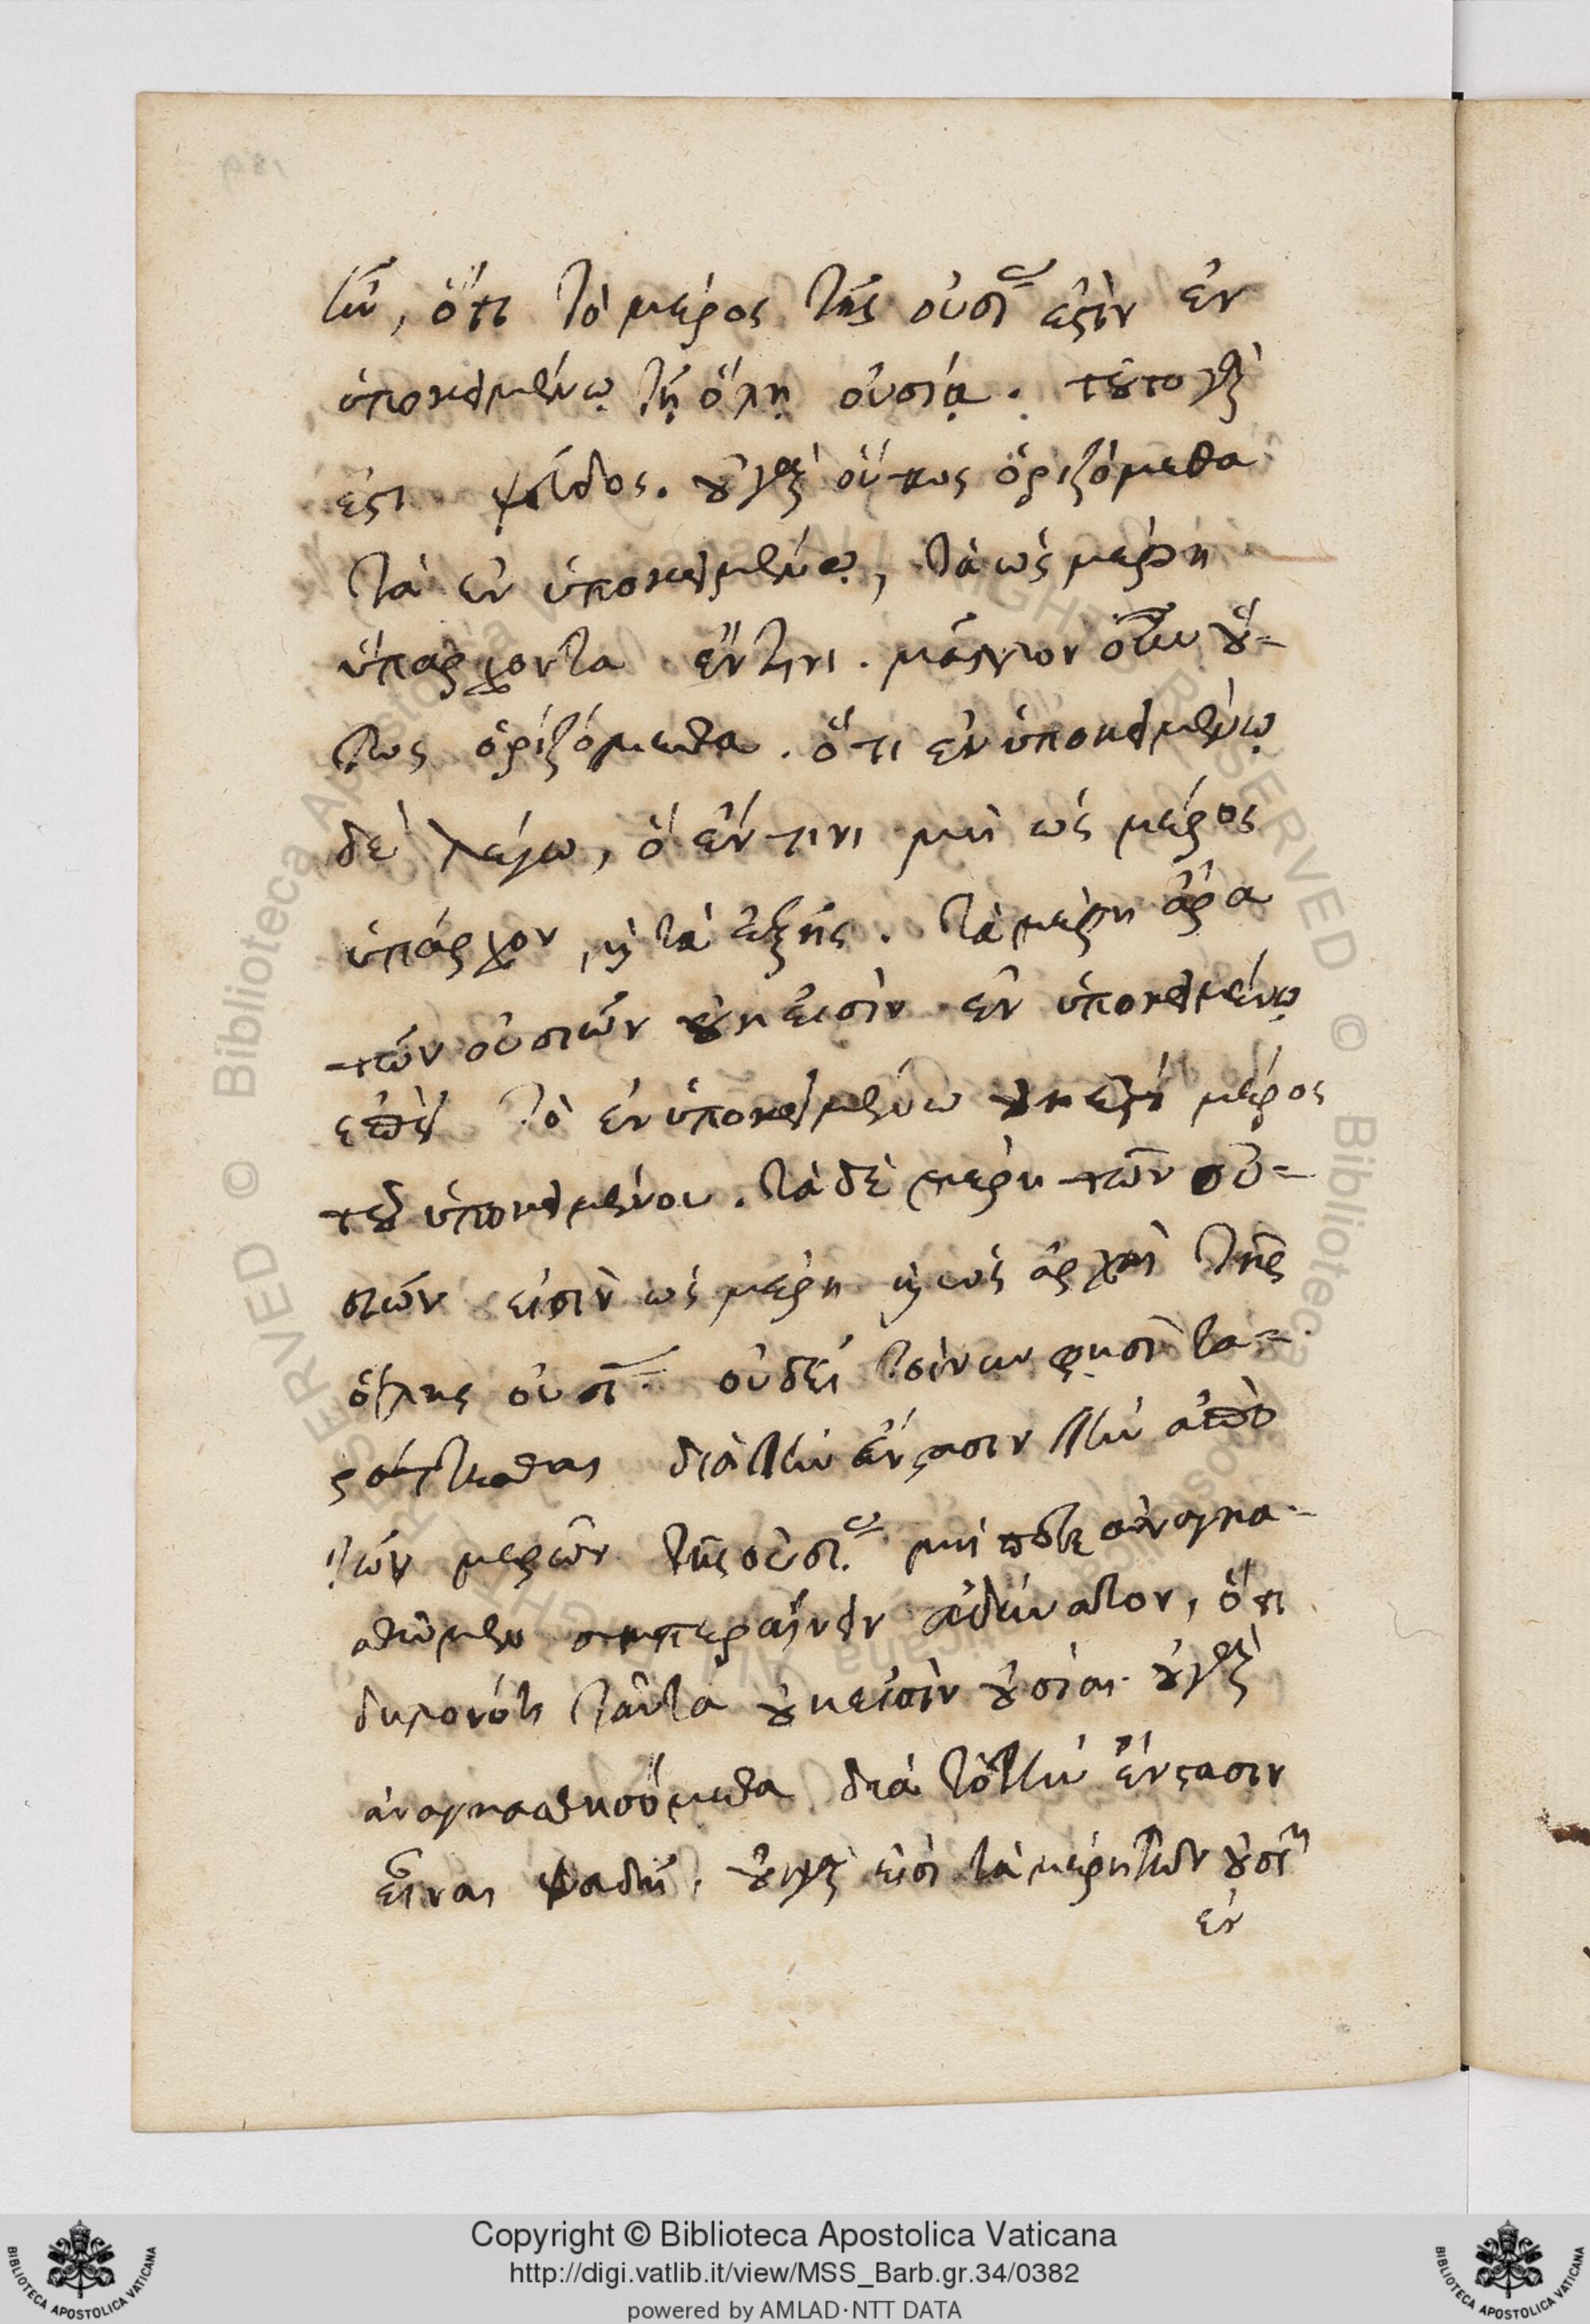 τὴν, ὅτι τὸ μέρος τῆς οὐσίας ἐστὶν ἐν
ὑποκειμένῳ τῇ ὅλῃ οὐσίᾳ. τοῦτο γὰρ
ἐστι ψεῦδος. οὐ γὰρ οὕτως ὁριζόμεθα
τὰ ἐν ὑποκειμένῳ, τὰ ὡς μέρη
ὑπάρχοντα ἔν τινι. μᾶλλον οὖν οὕ-
τως ὁριζόμεθα. ὅτι ἐν ὑποκειμένῳ
δὲ λέγω, ὃ ἔν τινι μὴ ὡς μέρος
ὑπάρχον, καὶ τὰ ἑξῆς. τὰ μέρη ἄρα
τῶν οὐσιῶν οὐκ εἰσὶν ἐν ὑποκειμένῳ
ἐπεὶ τὸ ἐν ὑποκειμένω οὐκ ἐστὶ μέρος
τοῦ ὑποκειμένου. τὰ δὲ μέρη τῶν οὐ-
σιῶν εἰσὶν ὡς μέρη καὶ ὡς ἀρχαὶ τῆς
ὅλης οὐσίας. οὐ δεῖ τοίνυν φησὶ τα-
ράττεσθαι διὰ τὴν ἔνστασιν τὴν ἀπὸ
τῶν μερῶν τῆς οὐσίας μήποτε ἀναγκα-
σθῶμεν συμπεραίνειν ἀδύνατον, ὅτι
δηλονότι ταῦτα οὐκ εἰσὶν οὐσίαι. οὐ γὰρ
ἀναγκασθησόμεθα διὰ τὸ τὴν ἔνστασιν
εἶναι ψευδῆ. οὐ γὰρ εἰσὶ τὰ μέρη τῶν οὐσιῶν
ἐν
Copyright © Biblioteca Apostolica Vaticana
http://digi.vatlib.it/view/MSS_Barb.gr.34/0382
powered by AMLAD·NTT DATA
BIBLIOTECA APOSTOLICA VATICANA
BIBLIOTECA APOSTOLICA VATICANA